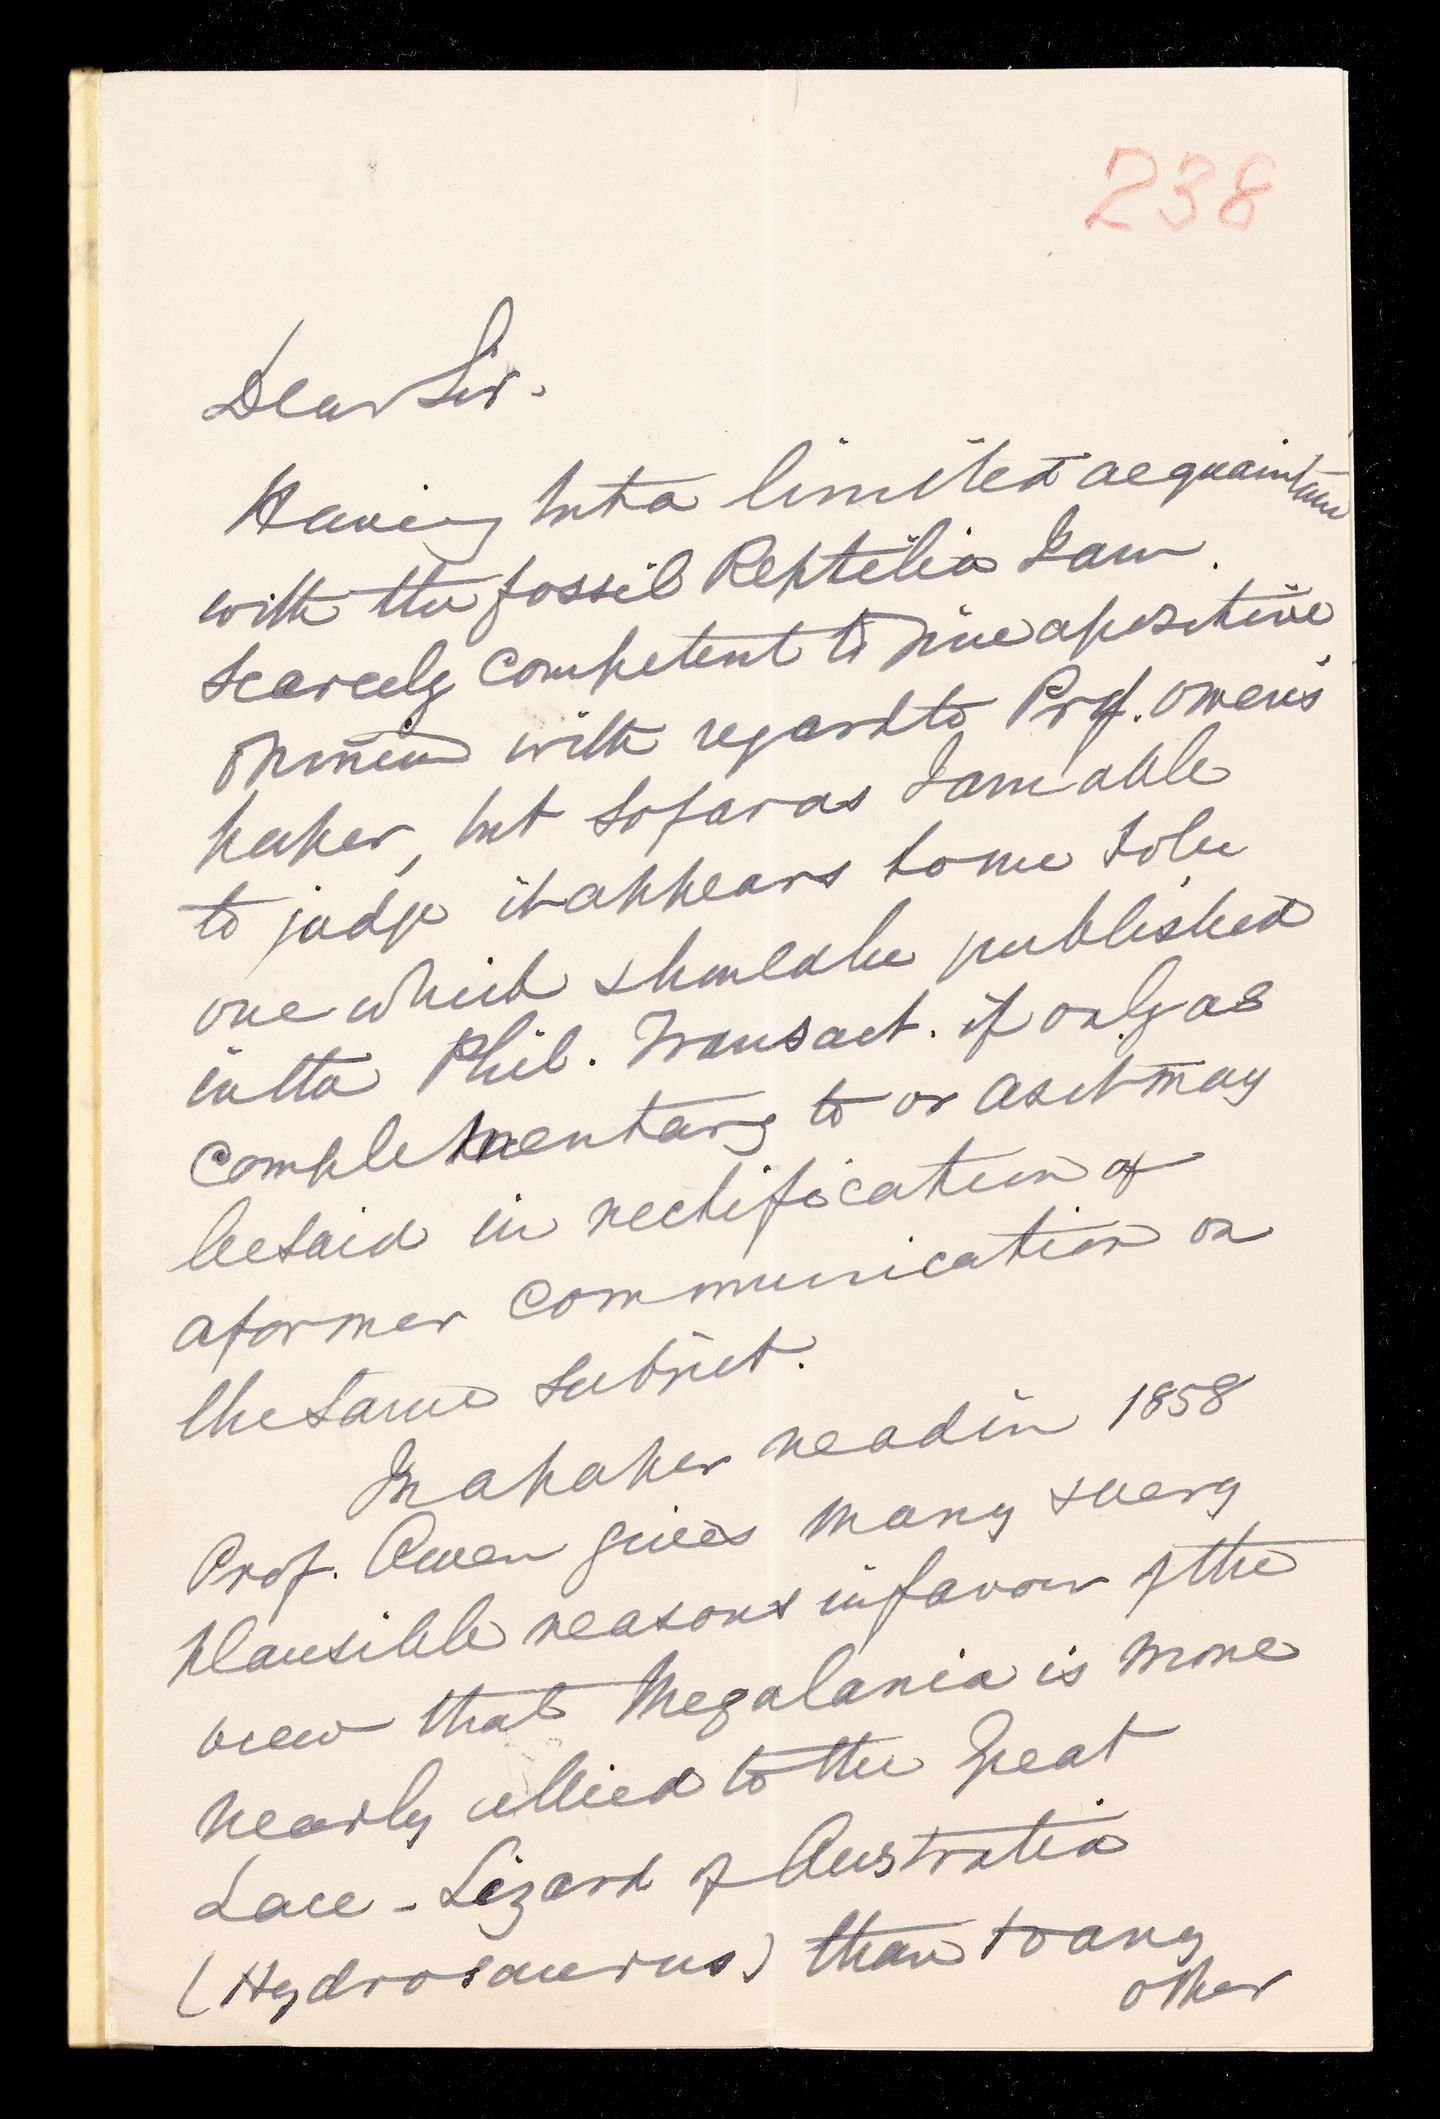 238
Dear Sir.
Having but a limited acquaintance
with the fossil Reptilia I am
scarcely competent to give a positive
opinion with regard to Prof. Owen's
paper, but so far as I am able
to judge it appears to me to be
one which should be published
in the Phil. Transact. if only as
complementary to or as it may
be said in rectification of
a former communication on
the same subject.
In a paper read in 1858
Prof. Owen gives many & very
plausible reasons in favour of the
view that Megalania is more
nearly allied to the great
Lace-Lizard of Australia
(Hydrosaurus) than to any
other